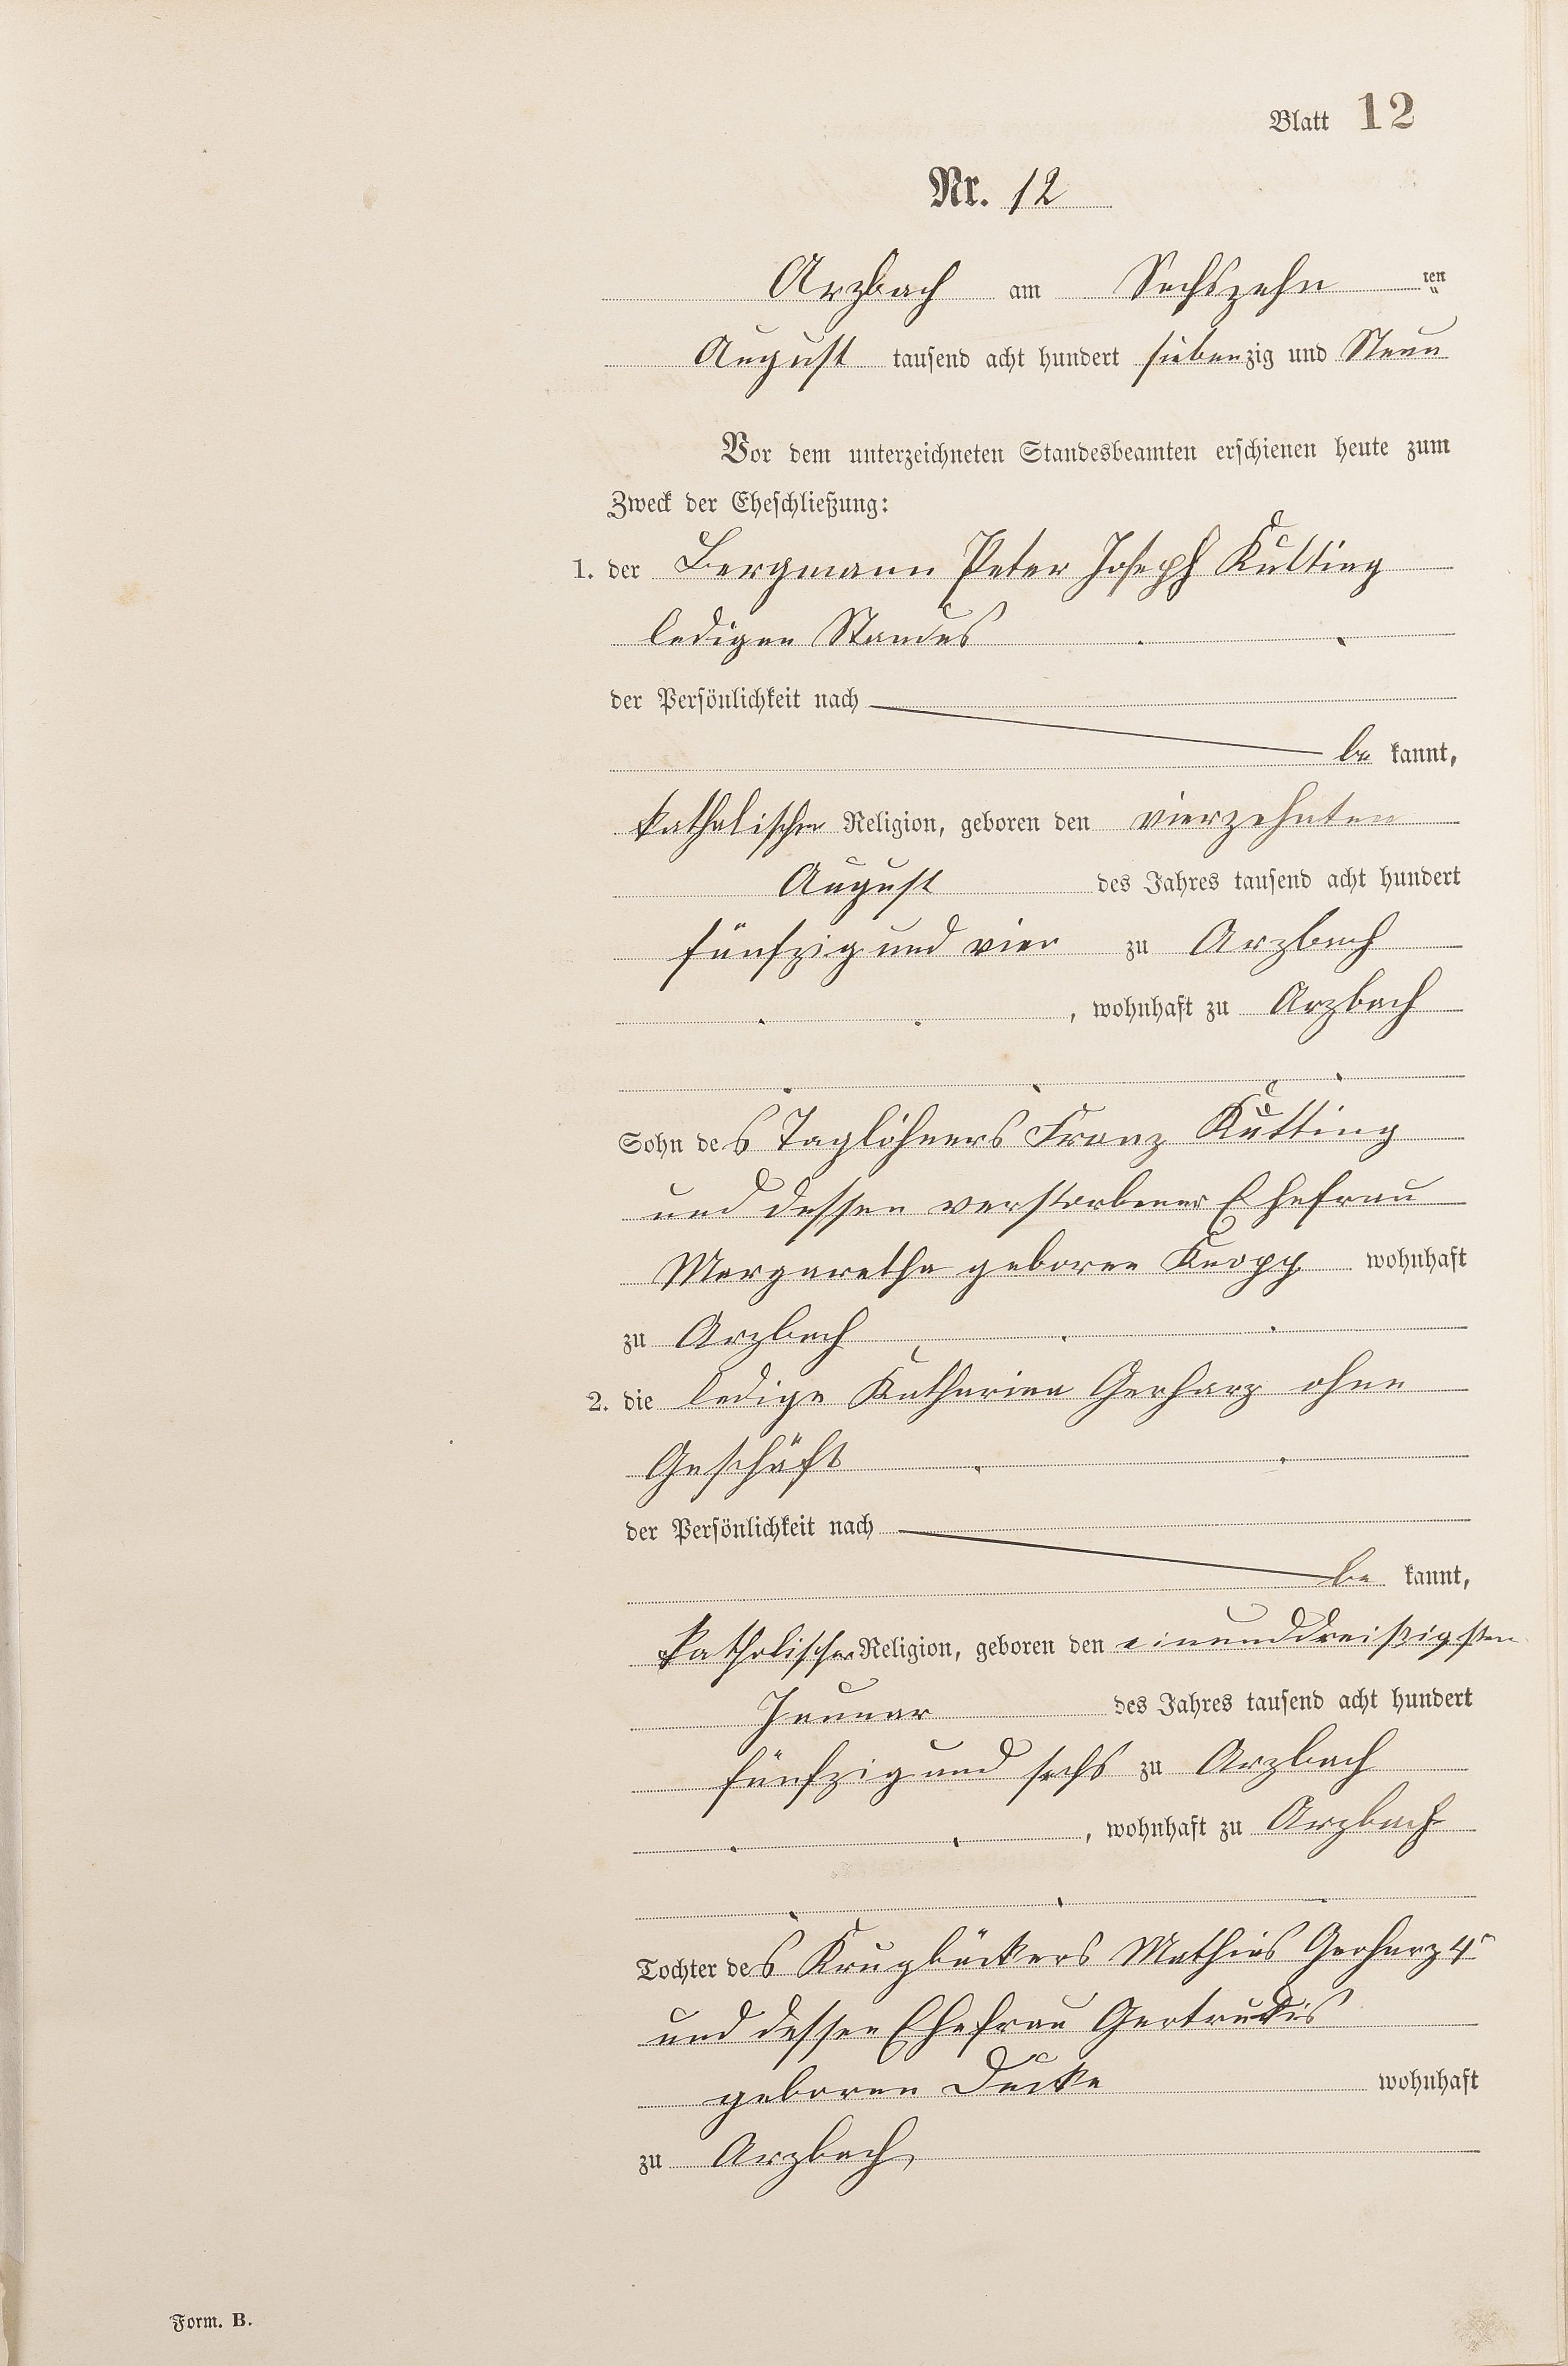 Blatt 12
Nr. 12
Arzbach am Sechszehn ten
August tausend acht hundert siebenzig und Neun
Vor dem unterzeichneten Standesbeamten erschienen heute zum
Zweck der Eheschließung:
1. der Bergmann Peter Joseph Kutting
ledigen Standes
der Persönlichkeit nach
be kannt,
katholischen Religion, geboren den vierzehnten
August des Jahres tausend acht hundert
fünfzig und vier zu Arzbach
, wohnhaft zu Arzbach
Sohn des Taglöhners Franz Kutting
und dessen verstorbener Ehefrau
Margaretha geborene Knopp wohnhaft
zu Arzbach
2. die ledige Katharina Gerharz ohne
Geschäft
der Persönlichkeit nach
be kannt,
katholischer Religion, geboren den einunddreißigsten
Januar des Jahres tausend acht hundert
fünfzig und sechs zu Arzbach
, wohnhaft zu Arzbach
Tochter des Krugbäckers Mathias Gerharz 4r
und dessen Ehefrau Gertrudis
geborene Ducke wohnhaft
zu Arzbach,
Form. B.